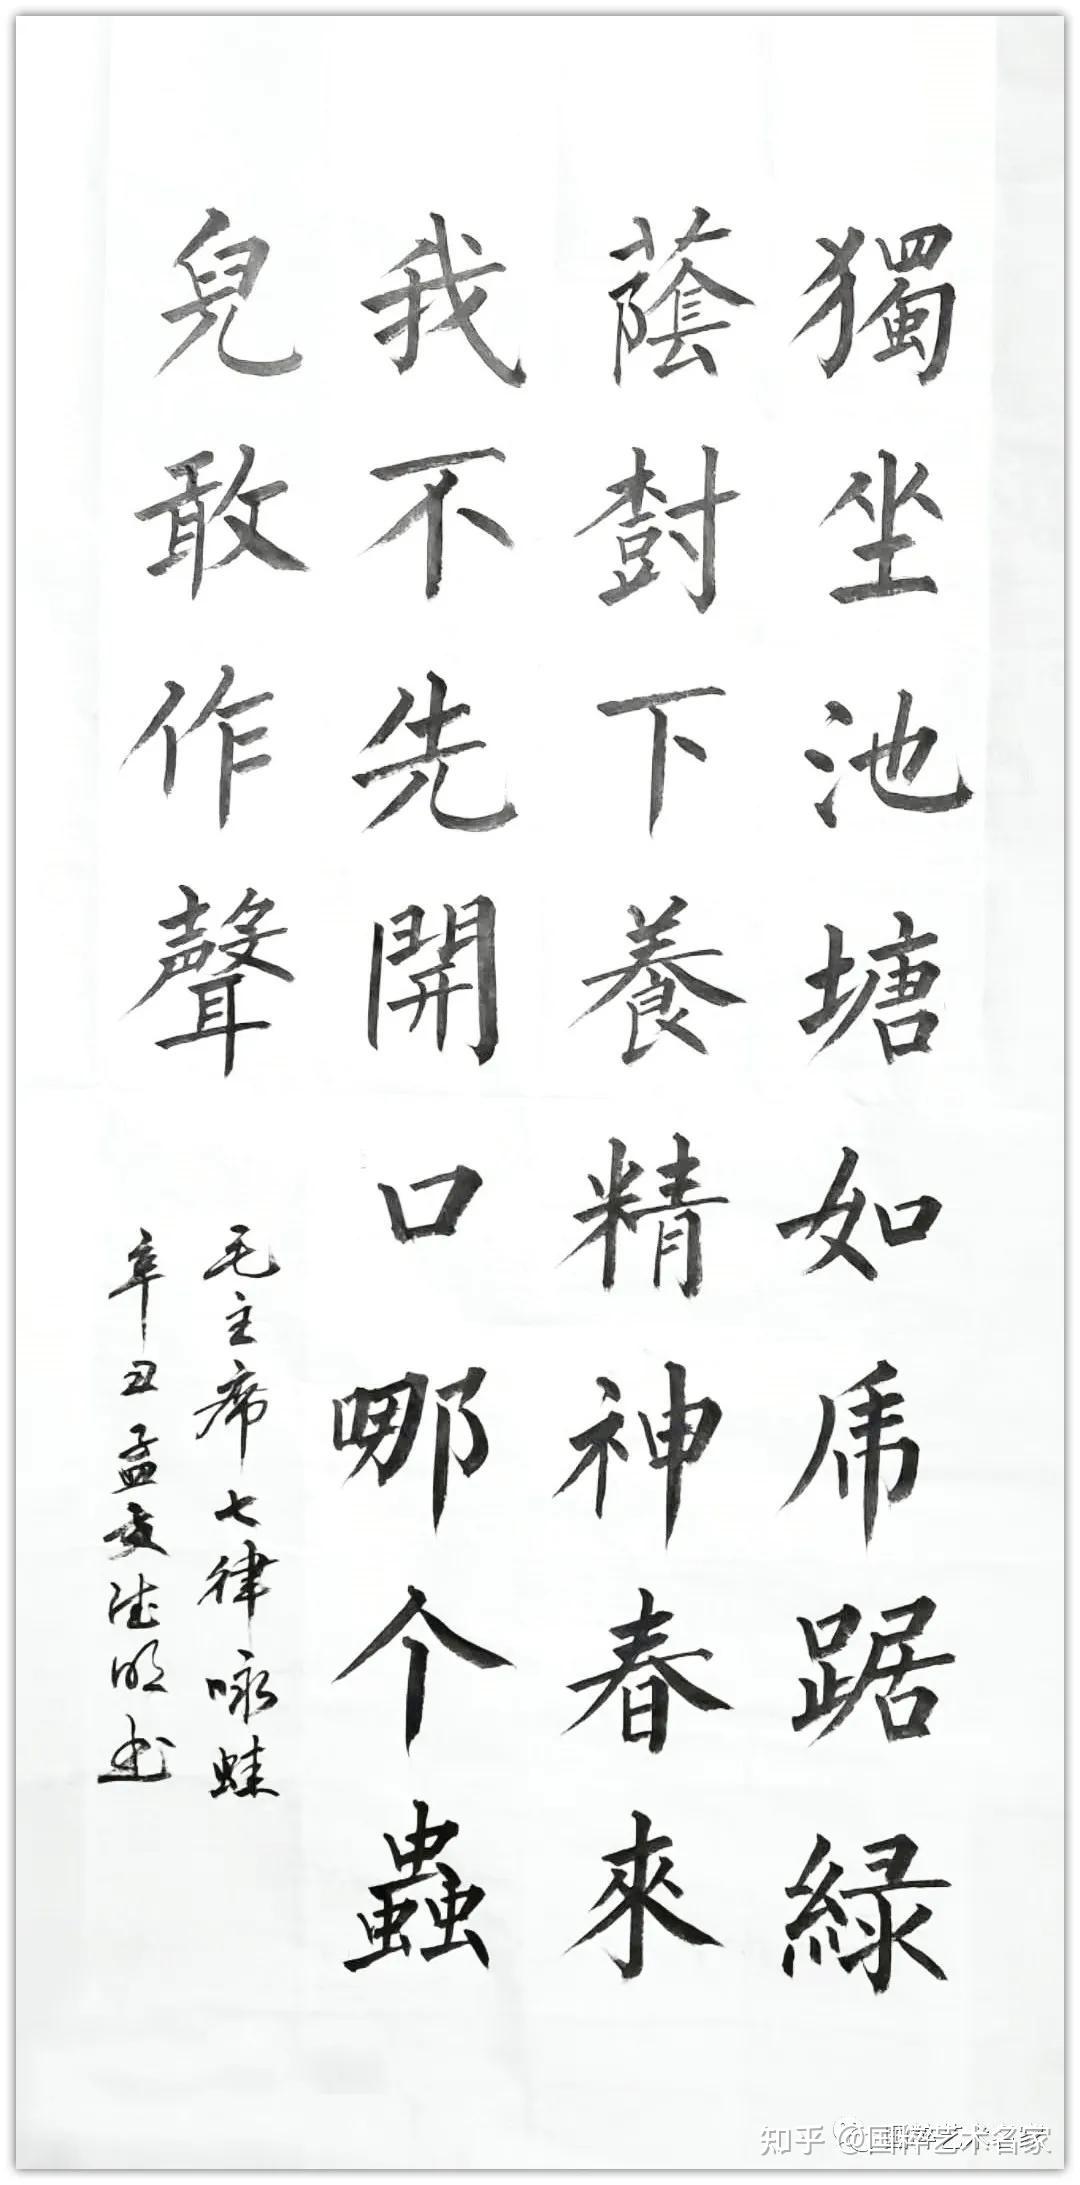 獨坐池塘如虎踞綠
蔭樹下養精神春來
我不先開口哪个蟲
兒敢作聲
毛主席七律咏蛙
辛丑孟夏德明书
知乎 @国粹艺术名家